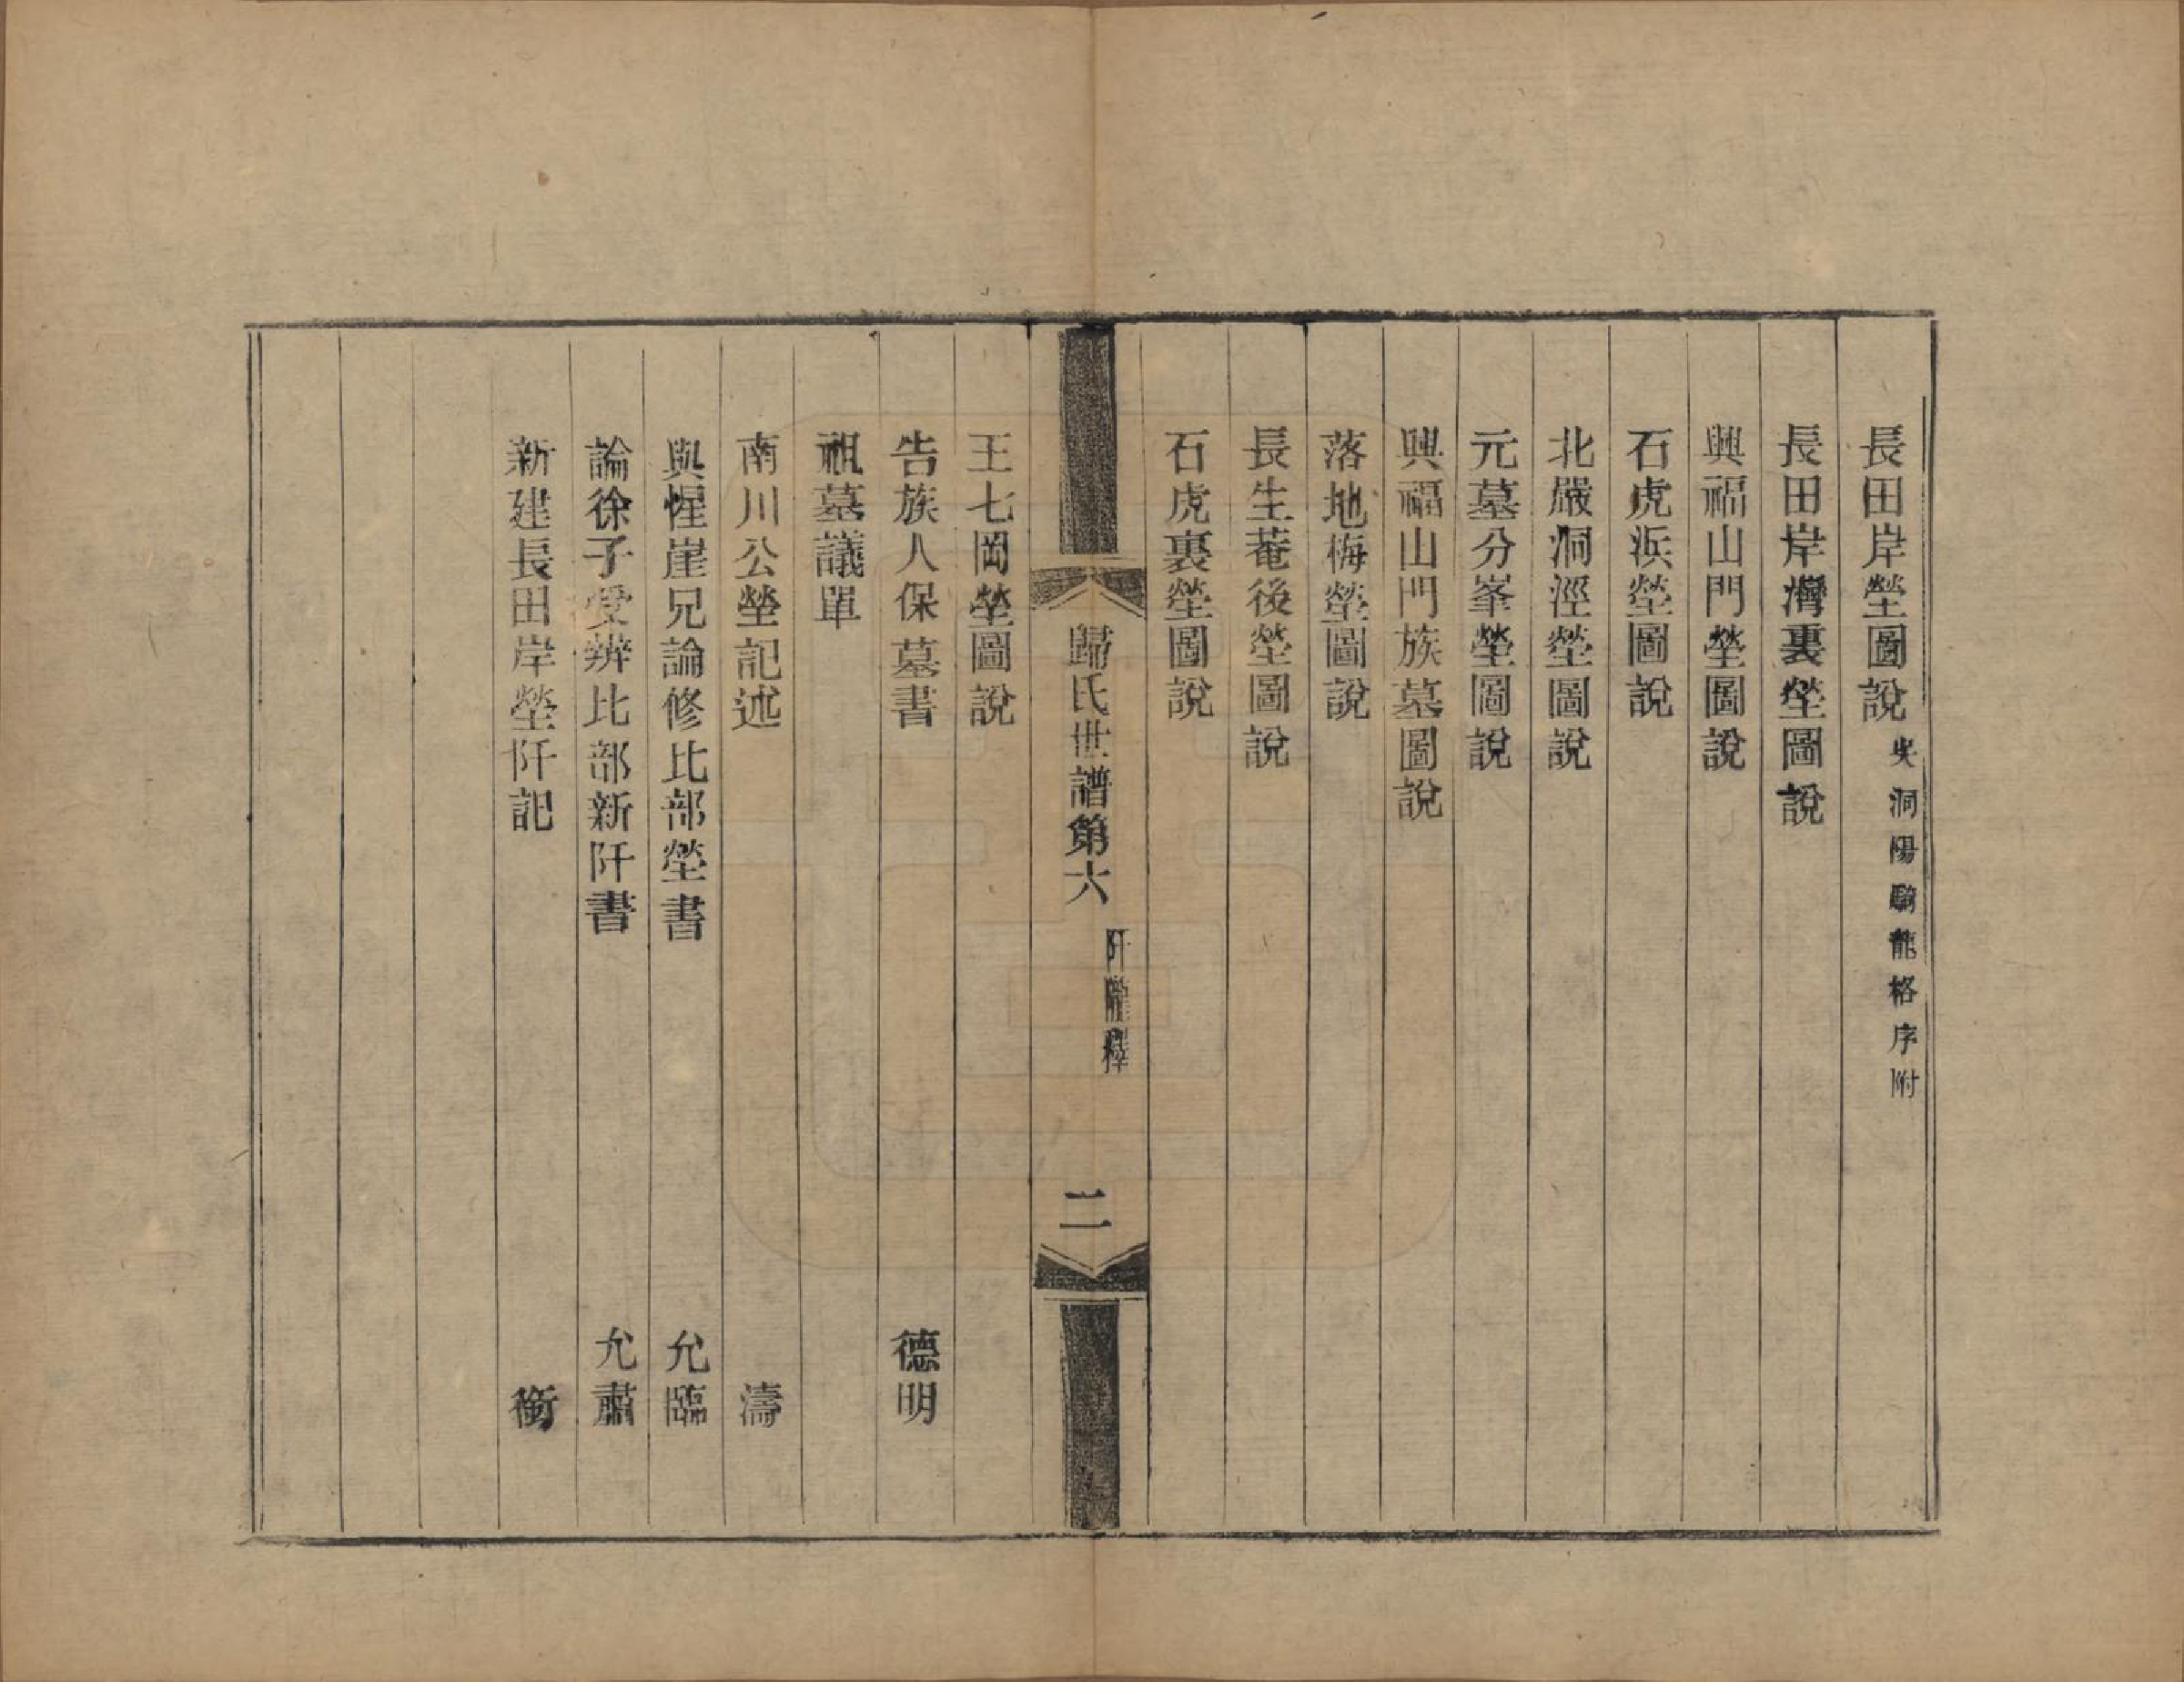 長田岸塋圖說 史洞陽驪龍格序附
長田岸灣裏塋圖說
興福山門塋圖說
石虎浜塋圖說
北嚴洞涇塋圖說
元墓分峯塋圖說
興福山門族墓圖說
落地梅塋圖說
長生菴後塋圖說
石虎裏塋圖說
歸氏世譜第六 阡隴釋 二
王七岡塋圖說
告族人保墓書 德明
祖墓議單
南川公塋記述 濤
與惺崖兄論修比部塋書 允臨
論徐子受辨比部新阡書 允肅
新建長田岸塋阡記 衡